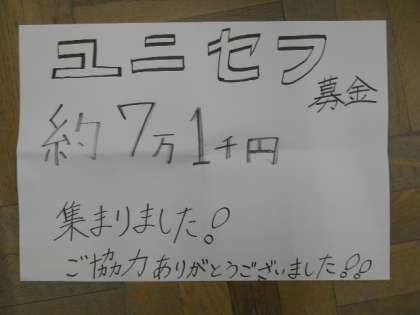 ユニセフ
募金
約7万1千円
集まりました!
ご協力ありがとうございました!!